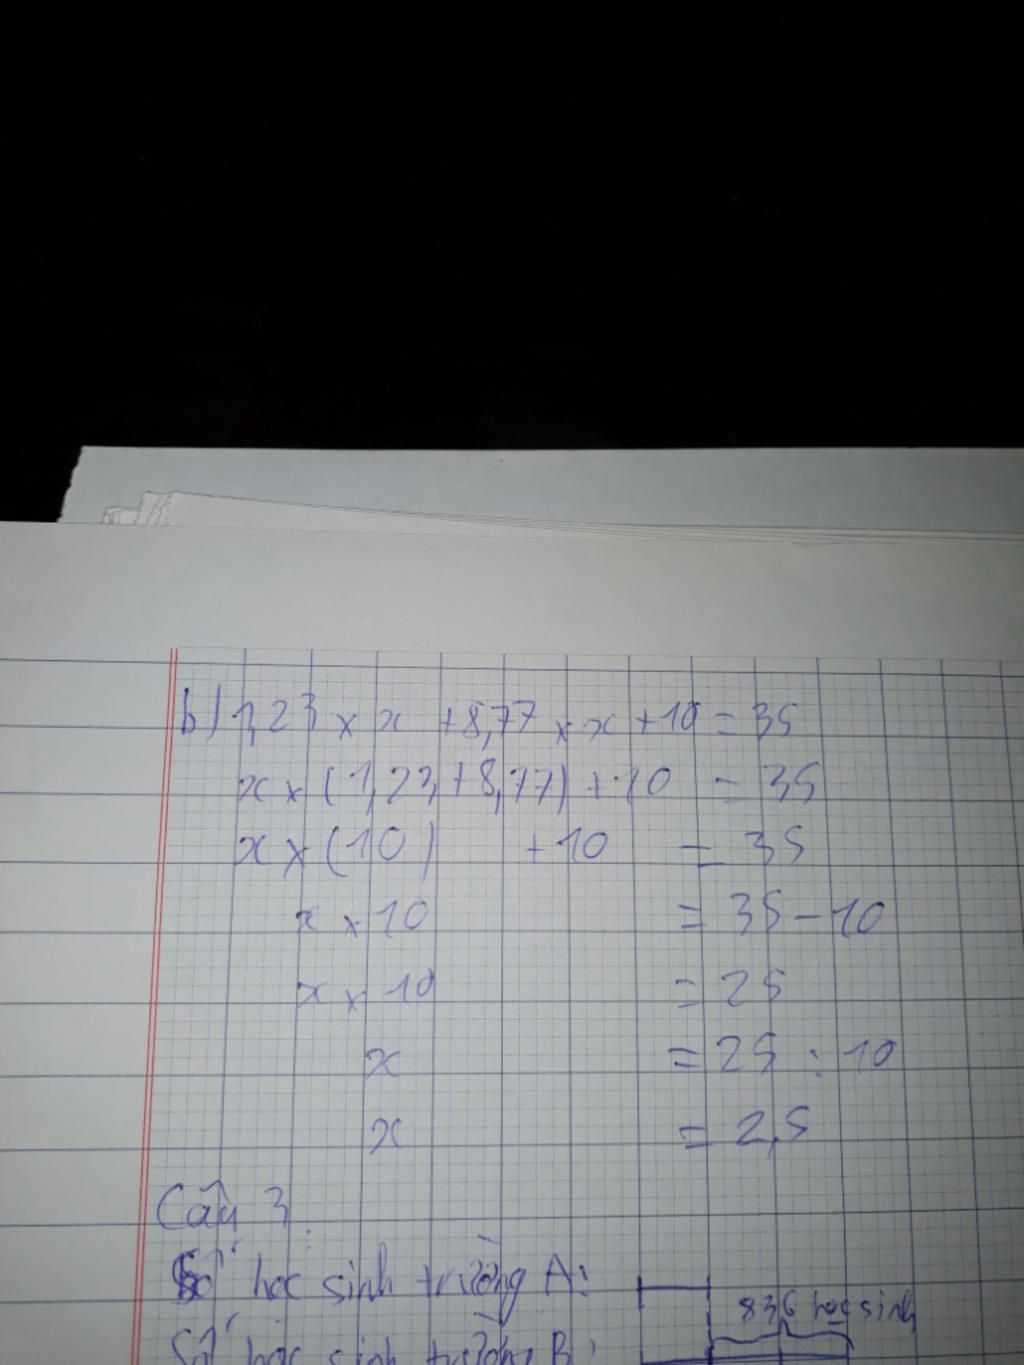 b) 1,23 × x + 8,77 × x + 10 = 35
x × (1,23 + 8,77) + 10 = 35
x × (10) + 10 = 35
x × 10 = 35 - 10
x × 10 = 25
x = 25 : 10
x = 2,5
Câu 3:
Số học sinh trường A:
836 học sinh
Số học sinh trường B: